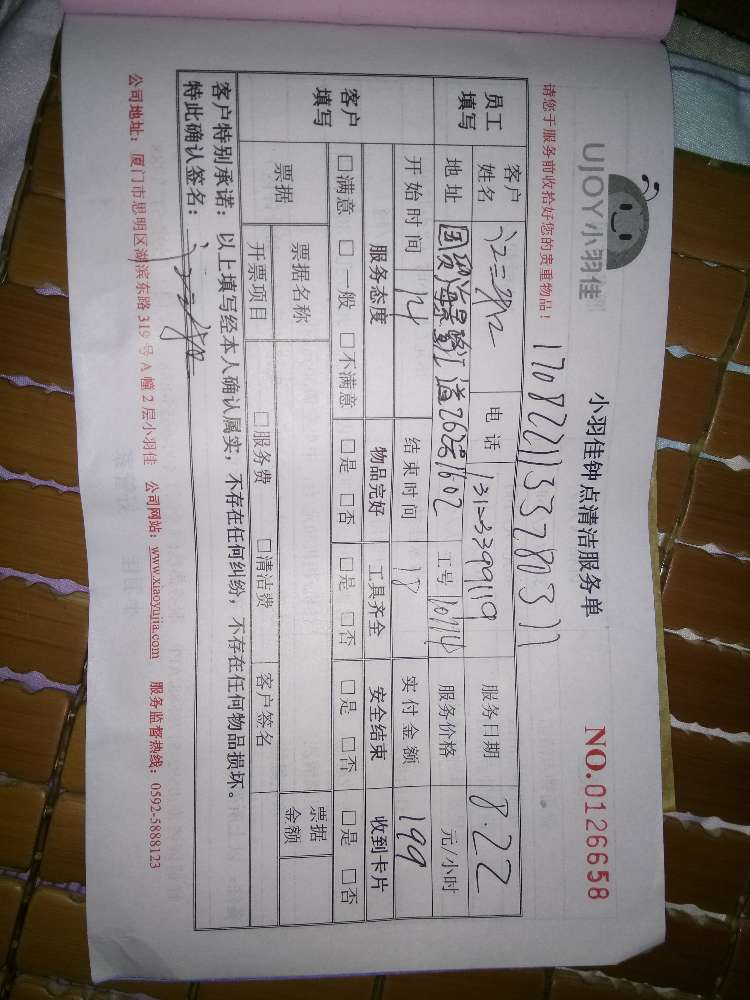 UJOY小羽佳
小羽佳钟点清洁服务单
NO.0126658
请您于服务前收拾好您的贵重物品!
员工填写
客户姓名
电话
服务日期 8.22
地址
工号
服务价格 元/小时
开始时间 14
结束时间 18
实付金额 199
客户填写
服务态度 物品完好 工具齐全 安全结束 收到卡片
□满意 □一般 □不满意 □是 □否 □是 □否 □是 □否 □是 □否
票据
票据名称
票据金额
开票项目 □服务费 □清洁费 客户签名
客户特别承诺:以上填写经本人确认属实,不存在任何纠纷,不存在任何物品损坏。
特此确认签名:
公司地址:厦门市思明区湖滨东路 319 号 A 幢 2 层小羽佳 公司网站:www.xiaoyujia.com 服务监督热线:0592-5888123